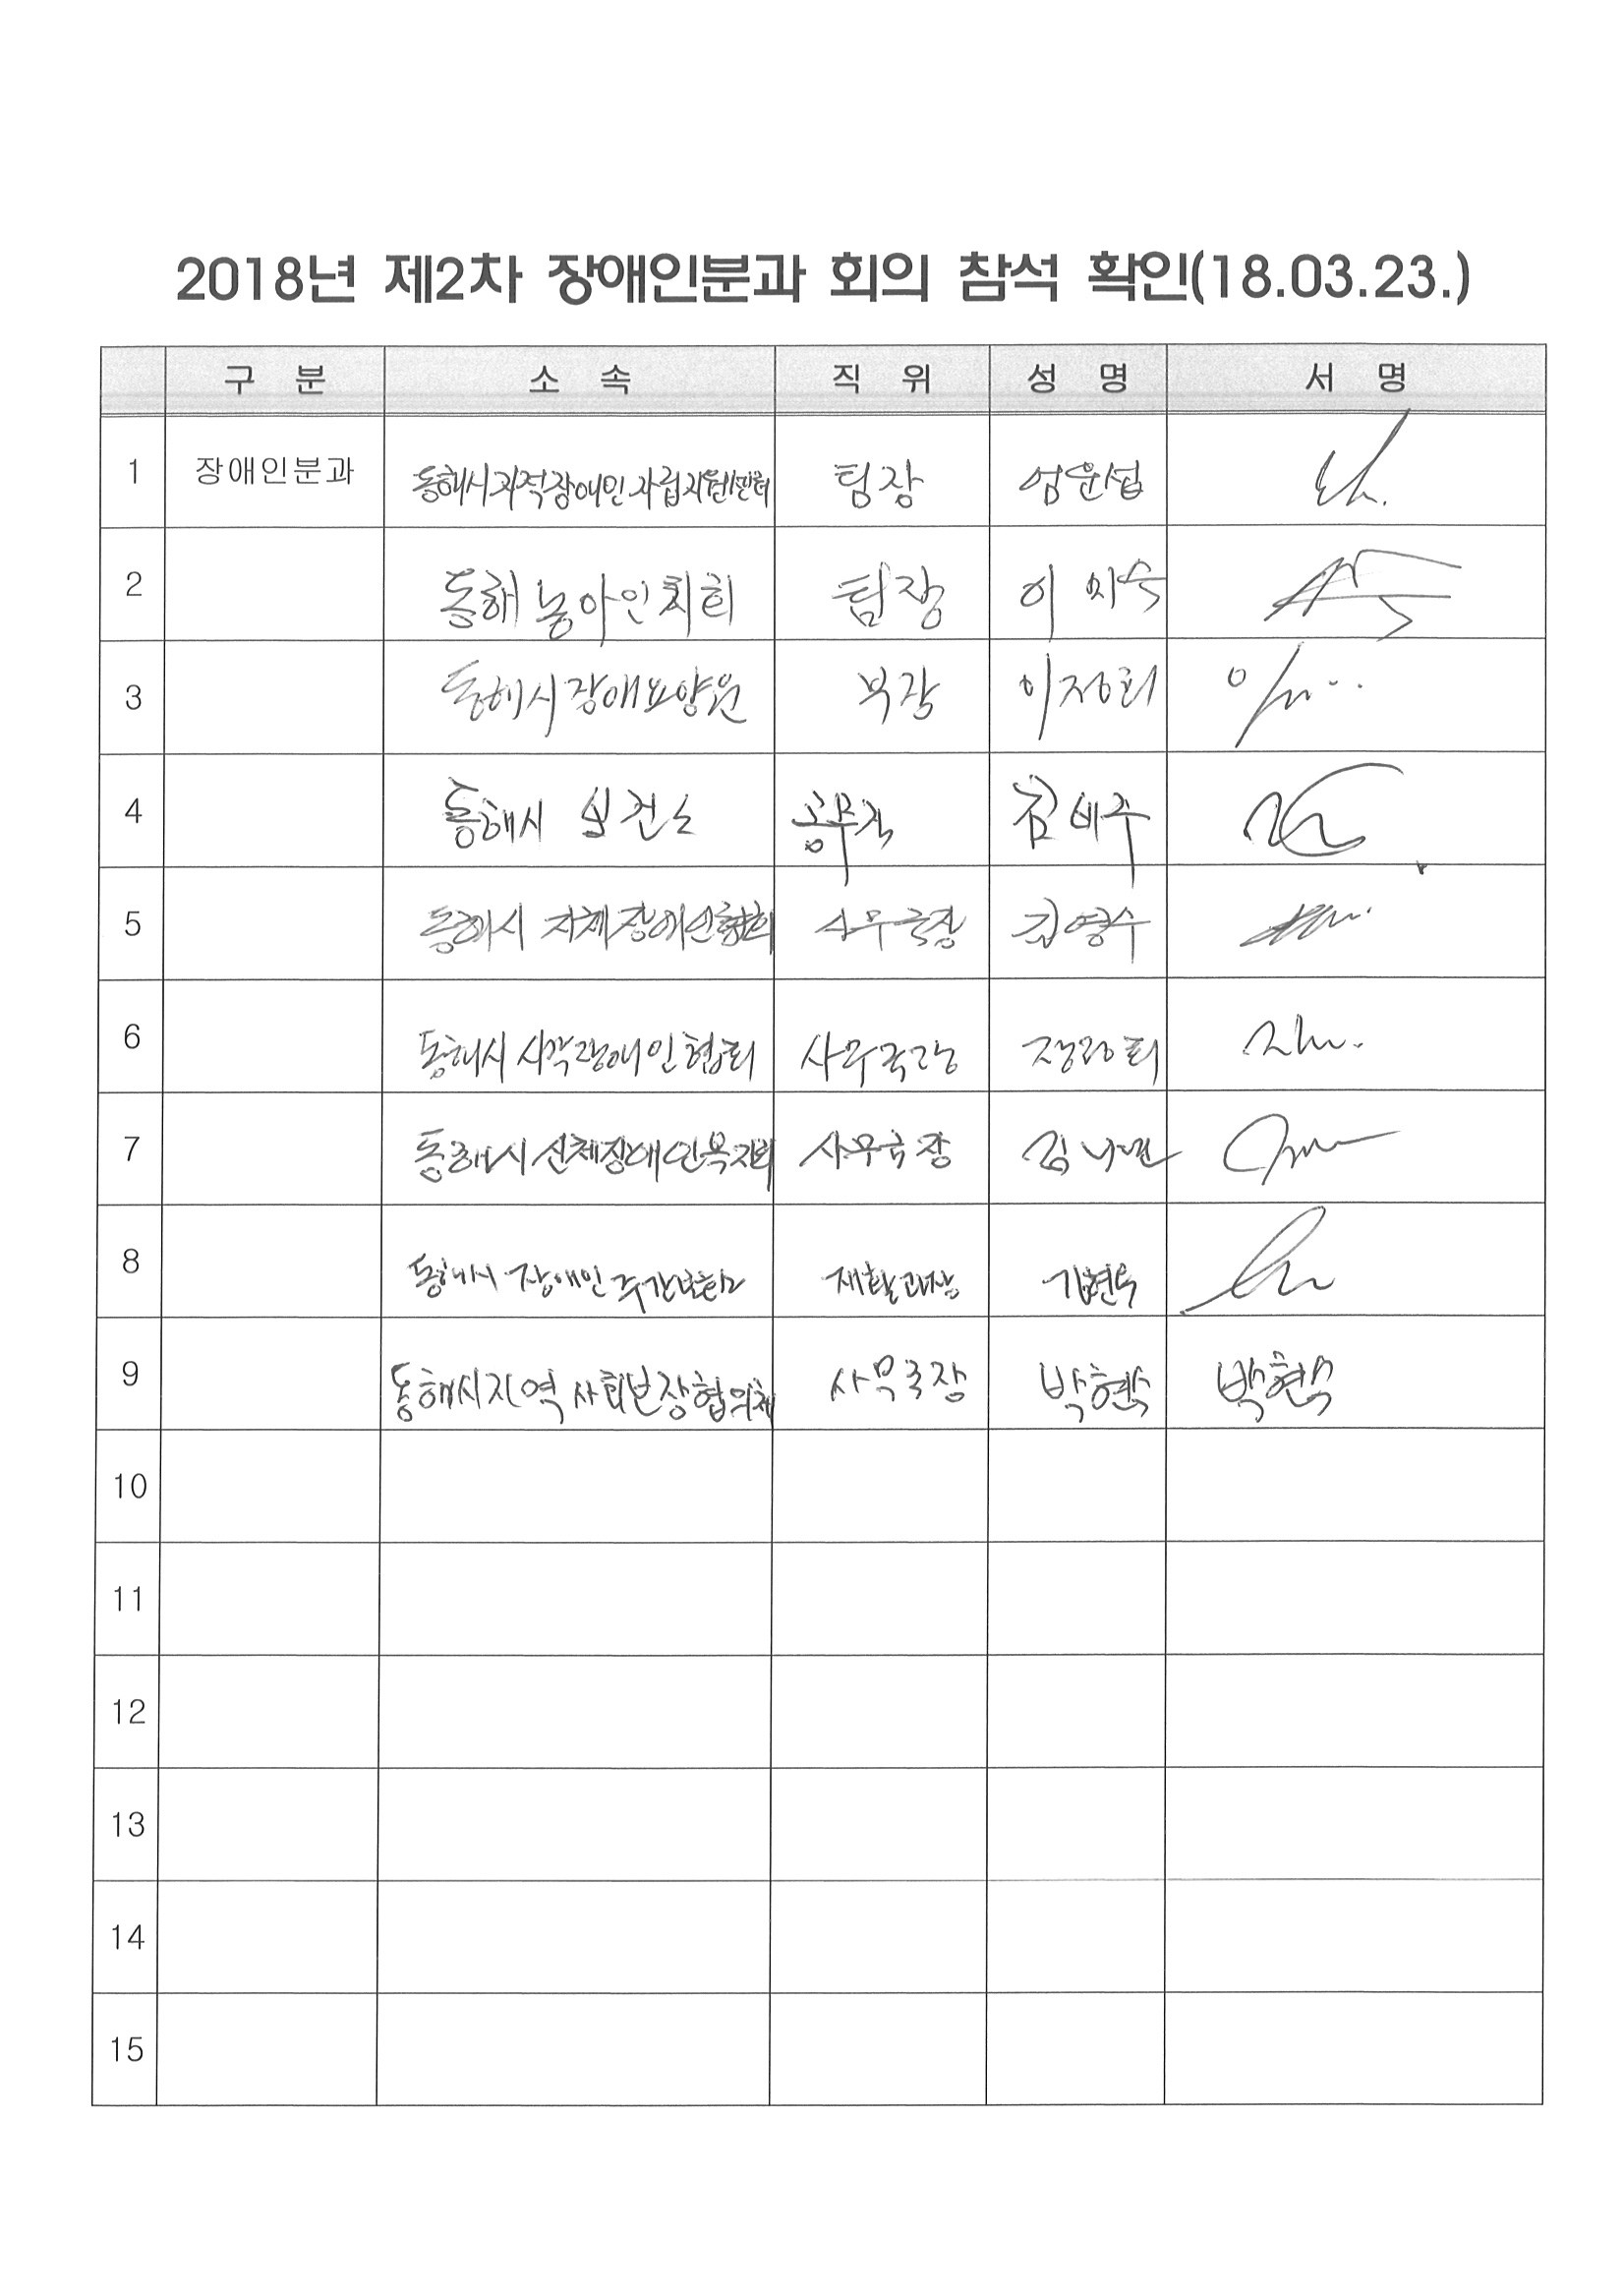 2018년 제2차 장애인분과 회의 참석 확인(18.03.23.)
구 분 소 속 직 위 성 명 서 명
1 장애인분과 동해시지적장애인자립지원센터 팀장 엄운섭
2 동해 농아인지회 팀장 이
3 동해시장애요양원 부장 이정희
4 동해시 보건소 공무직
5 동해시 지체장애인협회 사무국장 김영수
6 동해시 시각장애인협회 사무국장
7 동해시 신체장애인복지회 사무국장 김
8 동해시 장애인주간보호소 재활과장
9 동해시지역사회보장협의체 사무국장 박현숙 박현숙
10
11
12
13
14
15